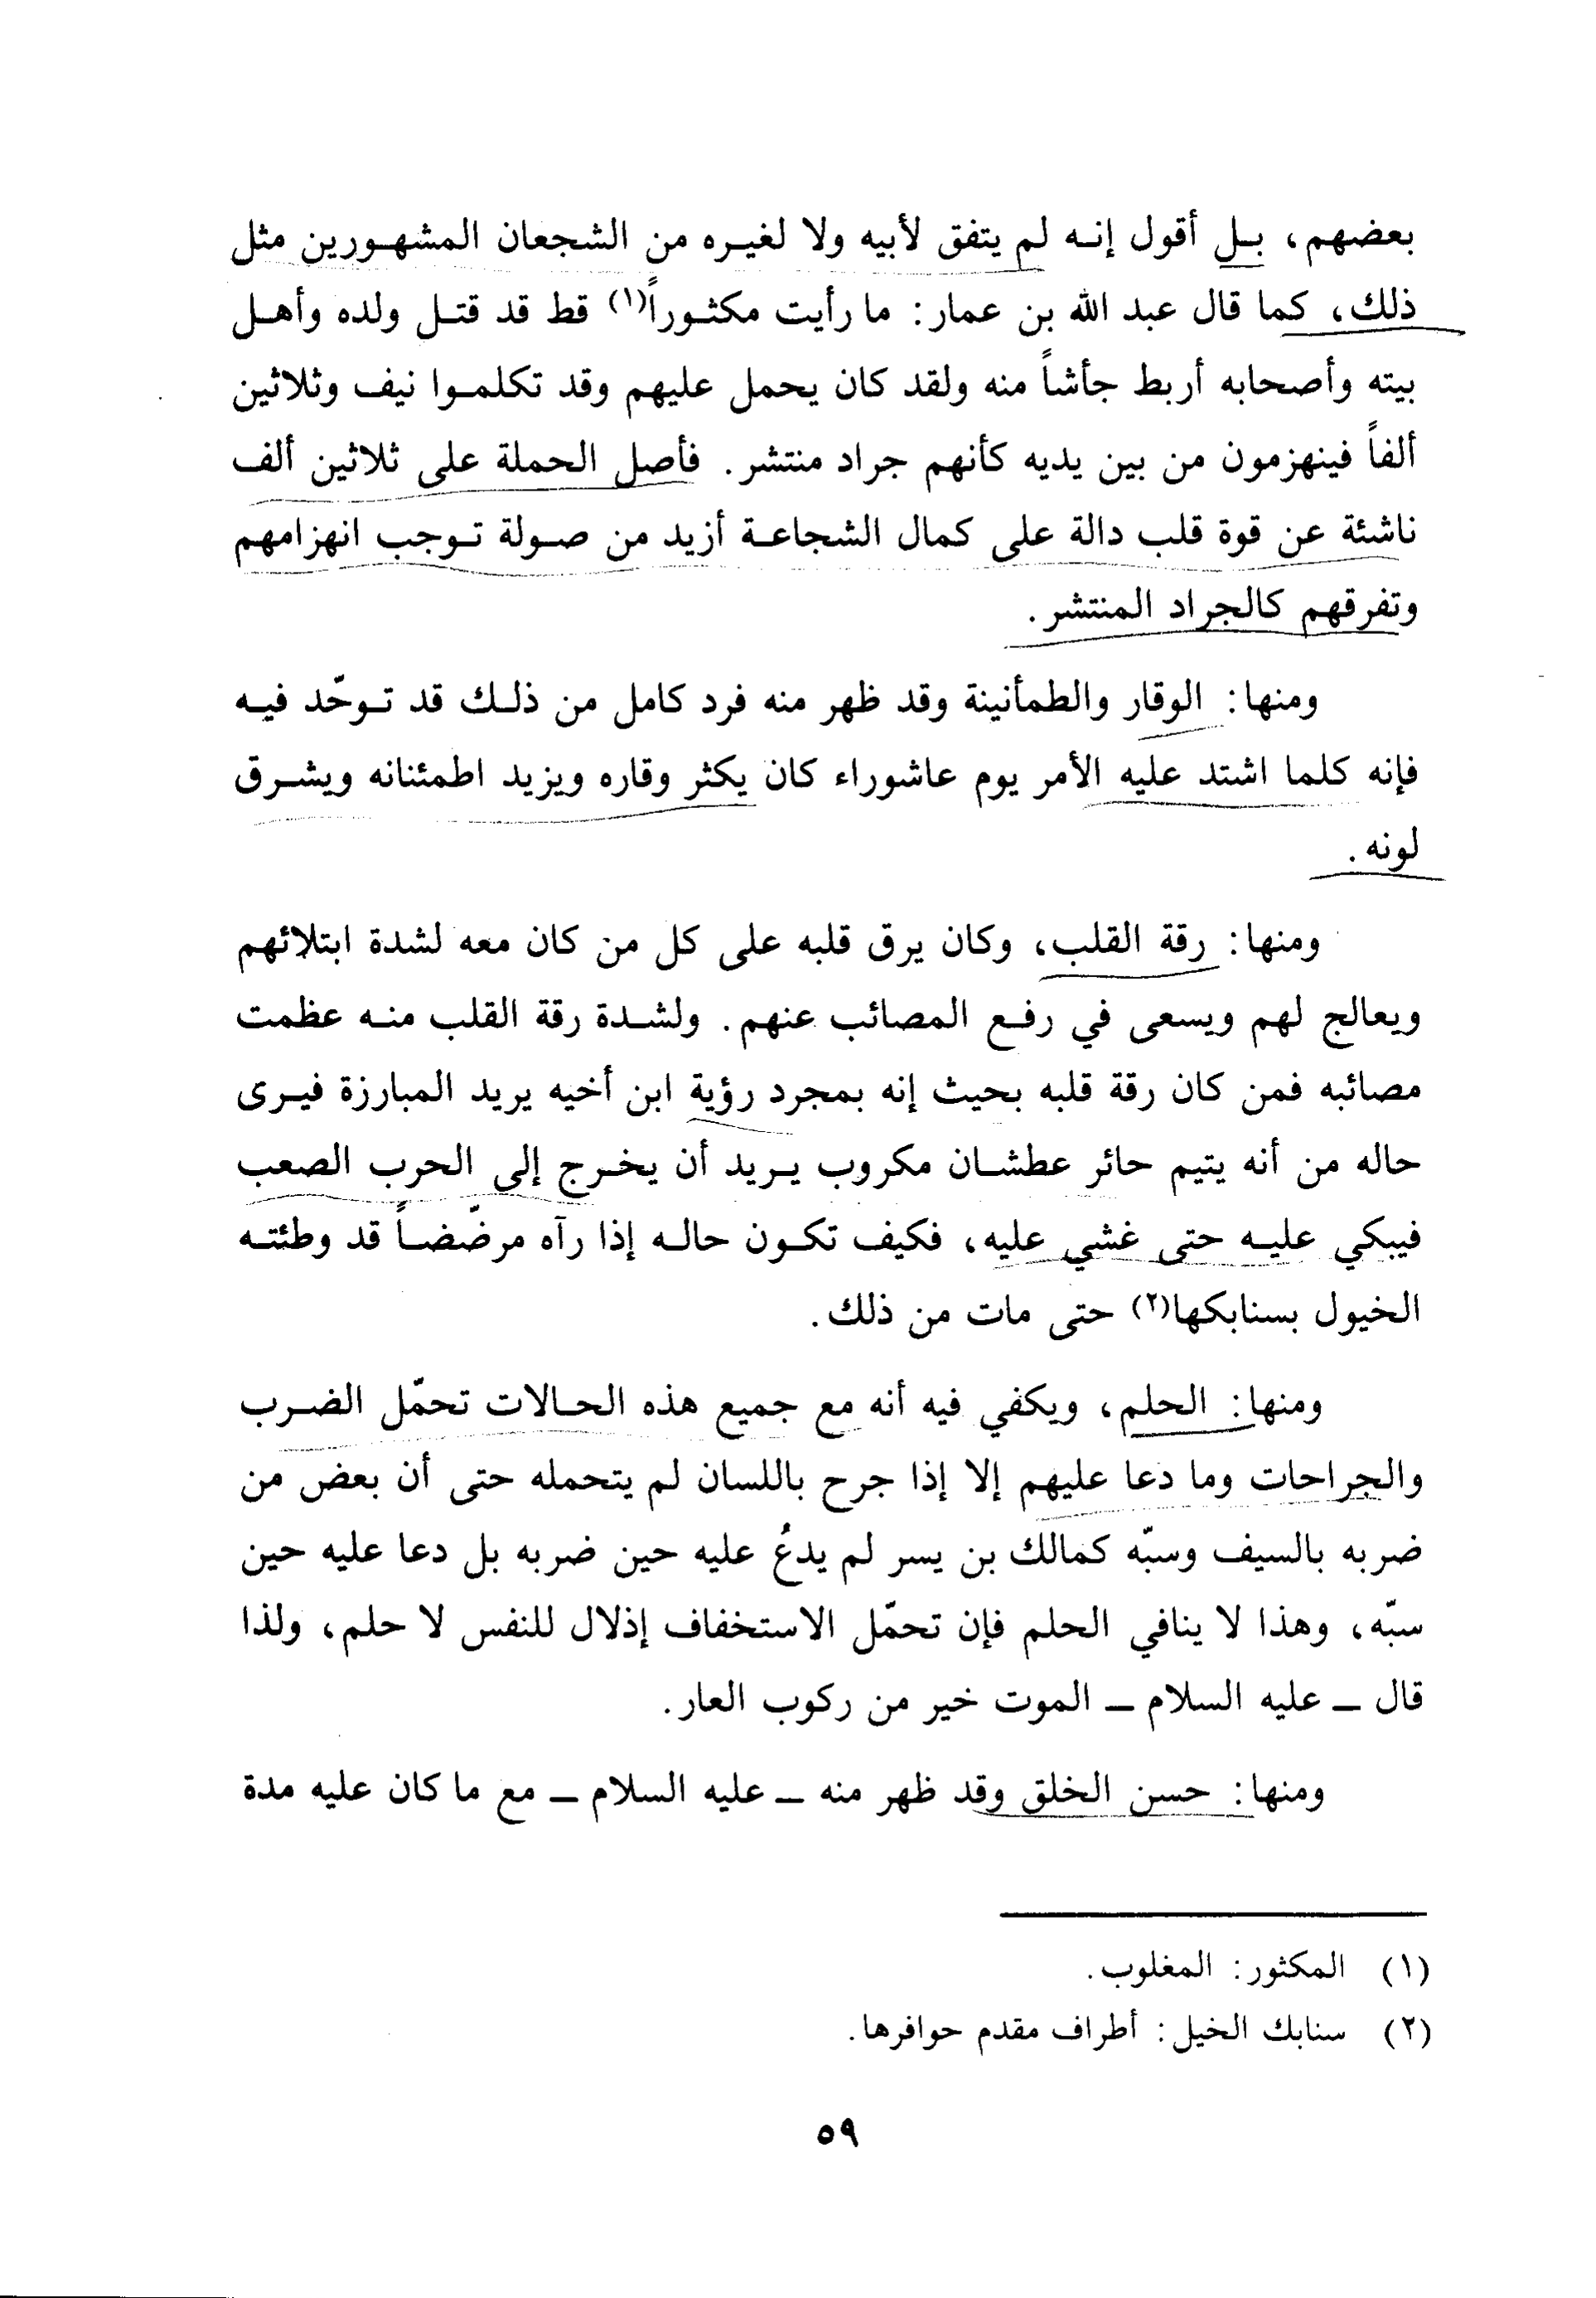 بعضهم، بل أقول إنه لم يتفق لأبيه ولا لغيره من الشجعان المشهورين مثل
ذلك، كما قال عبد الله بن عمار: ما رأيت مكثوراً(١) قط قد قتل ولده وأهل
بيته وأصحابه أربط جأشاً منه ولقد كان يحمل عليهم وقد تكلموا نيف وثلاثين
ألفاً فينهزمون من بين يديه كأنهم جراد منتشر. فأصل الحملة على ثلاثين ألف
ناشئة عن قوة قلب دالة على كمال الشجاعة أزيد من صولة توجب انهزامهم
وتفرقهم كالجراد المنتشر.
ومنها: الوقار والطمأنينة وقد ظهر منه فرد كامل من ذلك قد توحّد فيه
فإنه كلما اشتد عليه الأمر يوم عاشوراء كان يكثر وقاره ويزيد اطمئنانه ويشرق
لونه.
ومنها: رقة القلب، وكان يرق قلبه على كل من كان معه لشدة ابتلائهم
ويعالج لهم ويسعى في رفع المصائب عنهم. ولشدة رقة القلب منه عظمت
مصائبه فمن كان رقة قلبه بحيث إنه بمجرد رؤية ابن أخيه يريد المبارزة فيرى
حاله من أنه يتيم حائر عطشان مكروب يريد أن يخرج إلى الحرب الصعب
فيبكي عليه حتى غشي عليه، فكيف تكون حاله إذا رآه مرضّضاً قد وطئته
الخيول بسنابكها(٢) حتى مات من ذلك.
ومنها: الحلم، ويكفي فيه أنه مع جميع هذه الحالات تحمّل الضرب
والجراحات وما دعا عليهم إلا إذا جرح باللسان لم يتحمله حتى أن بعض من
ضربه بالسيف وسبّه كمالك بن يسر لم يدعُ عليه حين ضربه بل دعا عليه حين
سبّه، وهذا لا ينافي الحلم فإن تحمّل الاستخفاف إذلال للنفس لا حلم، ولذا
قال ــ عليه السلام ــ الموت خير من ركوب العار.
ومنها: حسن الخلق وقد ظهر منه ــ عليه السلام ــ مع ما كان عليه مدة
(١) المكثور: المغلوب.
(٢) سنابك الخيل: أطراف مقدم حوافرها.
٥٩